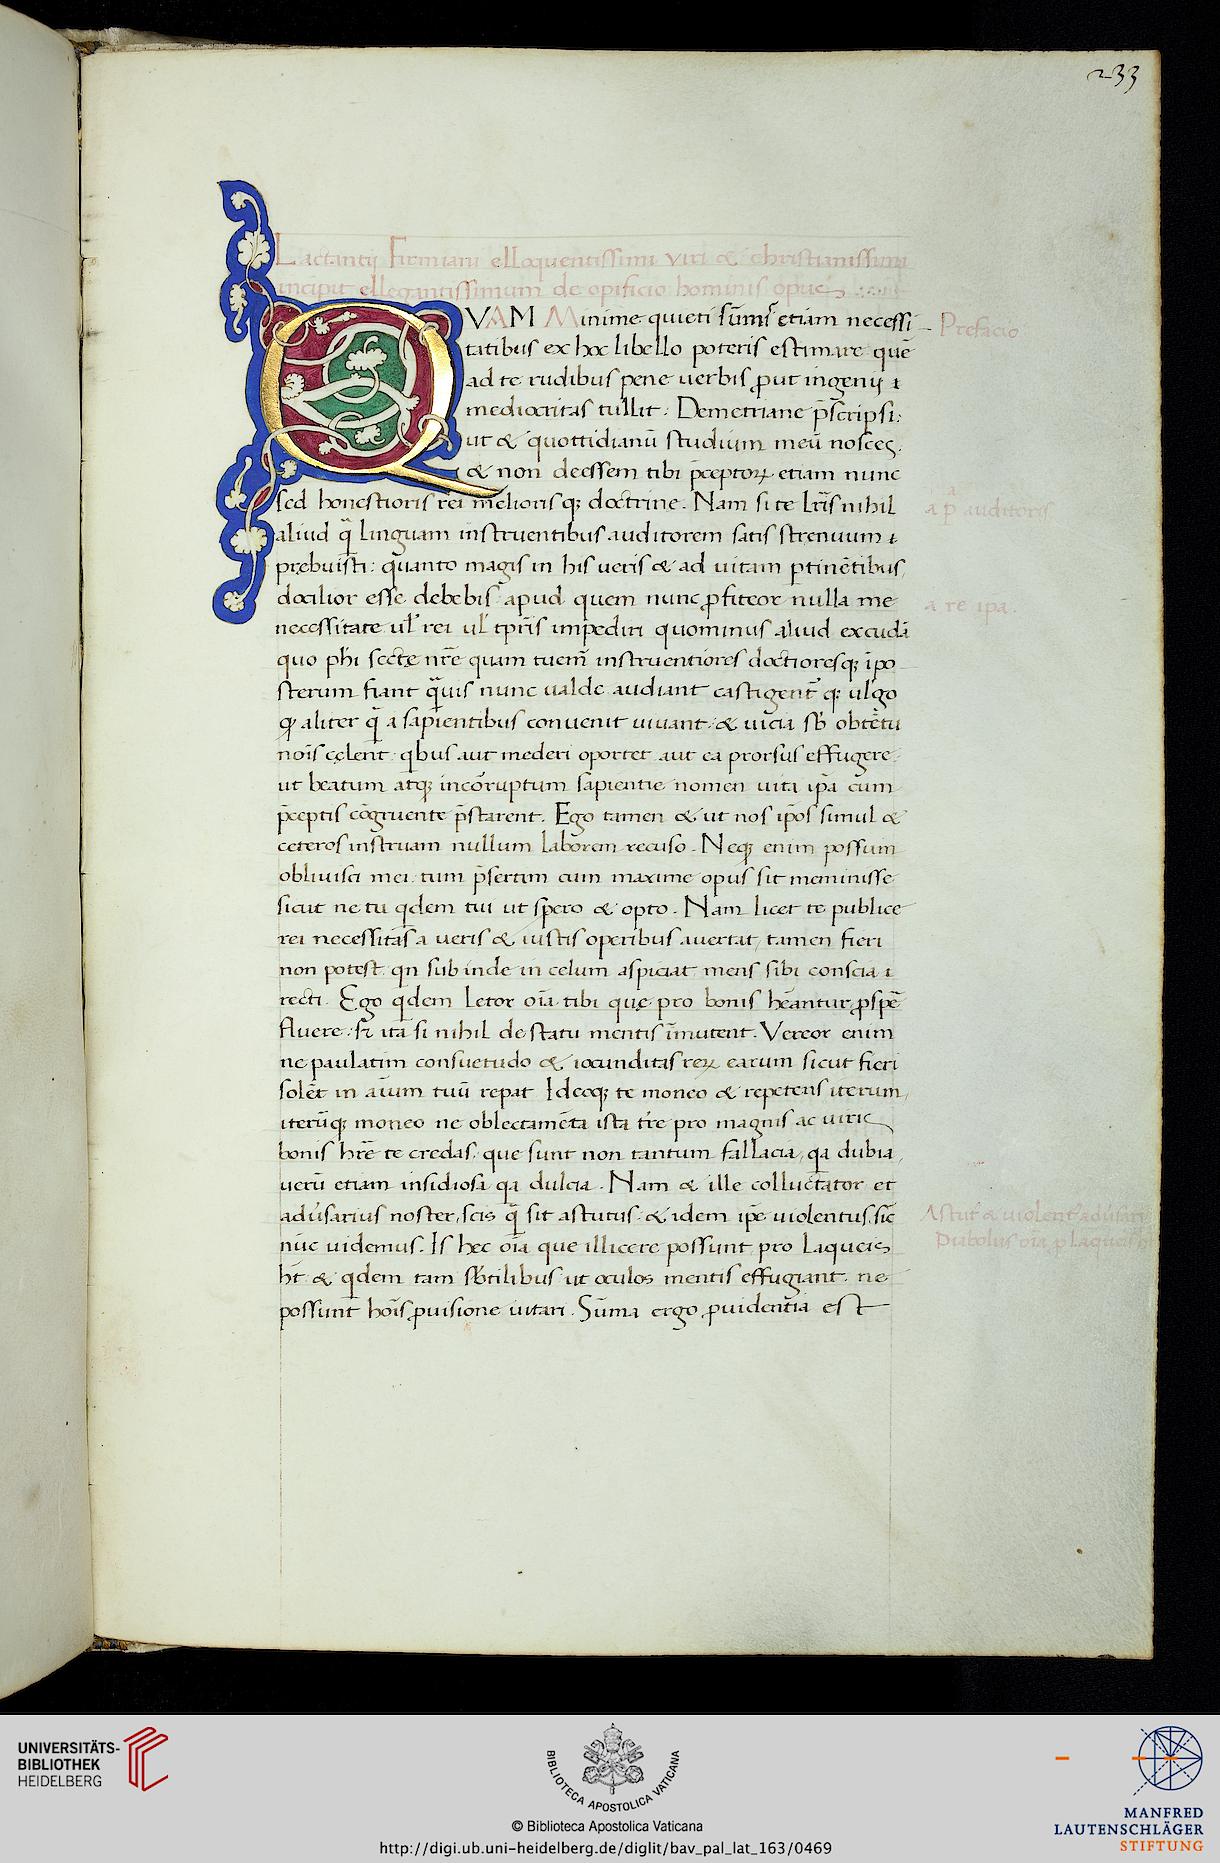 233
Lactantij Firmiani elloquentissimi viri & christianissimi
incipit ellegantissimum de opificio hominis opus
QVAM Minime quieti sūmꝰ etiam necessi
Prefacio
tatibus ex hoc libello poteris estimare quē
ad te rudibus pene uerbis ꝓut ingenij
mediocritas tullit: Demetriane p̄scripsi:
ut & quottidianū studium meū nosces.
& non deessem tibi p̄ceptoꝝ etiam nunc
sed honestioris rei meliorisqꝫ doctrine. Nam si te lr̄is nihil
a p̄ auditoris
aliud q̄ linguam instruentibus auditorem satis strenuum
prębuisti: quanto magis in his ueris & ad uitam ꝑtinētibus
docilior esse debebis apud quem nunc ꝓfiteor nulla me
a re ipa.
necessitate ul̓ rei ul̓ tp̄ris impediri quominus aliud excudā
quo ph̄i sectę nr̄e quam tuem̄ instruentiores doctioresqꝫ ī po
sterum fiant q̄uis nunc ualde audiant castigent̄ qꝫ ulgo
ꝙ aliter q̄ a sapientibus conuenit uiuant: & uicia sb̄ obtētu
nōis cęlent: qbus aut mederi oportet aut ea prorsus effugere
ut beatum atqꝫ incōruptum sapientie nomen uita ip̄a cum
p̄ceptis cōgruente p̄starent. Ego tamen & ut nos ip̄os simul &
ceteros instruam nullum laborem recuso. Neqꝫ enim possum
obliuisci mei tum p̄sertim cum maxime opus sit meminisse
sicut ne tu qdem tui ut spero & opto. Nam licet te publice
rei necessitas a ueris & iustis operibus auertat, tamen fieri
non potest qn subinde in celum aspiciat mens sibi conscia
recti. Ego qdem letor oīa tibi quę pro bonis hēantur ꝓspē
fluere: sȝ ita si nihil de statu mentis īmutent. Vereor enim
ne paulatim consuetudo & iocunditas reꝝ earum sicut fieri
solēt in aīum tuū repat Ideoqꝫ te moneo & repetens iterum,
iterūqꝫ moneo ne oblectamēta ista tr̄e pro magnis ac uiris
bonis hr̄e te credas, que sunt non tantum fallacia, qa dubia,
uerū etiam insidiosa qa dulcia. Nam & ille colluctator et
adu̓sarius noster, scis q̄ sit astutus: & idem ip̄e uiolentus, sic̄
Astutꝰ & uiolentꝰ adu̓sariꝰ
nūc uidemus. Is hec oīa que illicere possunt pro laqueis
Diabolus oīa ꝓ laqueis
ht̄ & qdem tam sb̄tilibus ut oculos mentis effugiant ne
possunt hōis ꝓuisione uitari. Sūma ergo ꝓuidentia est
UNIVERSITÄTS-
BIBLIOTHEK
HEIDELBERG
BIBLIOTECA APOSTOLICA VATICANA
© Biblioteca Apostolica Vaticana
http://digi.ub.uni-heidelberg.de/diglit/bav_pal_lat_163/0469
MANFRED
LAUTENSCHLÄGER
STIFTUNG